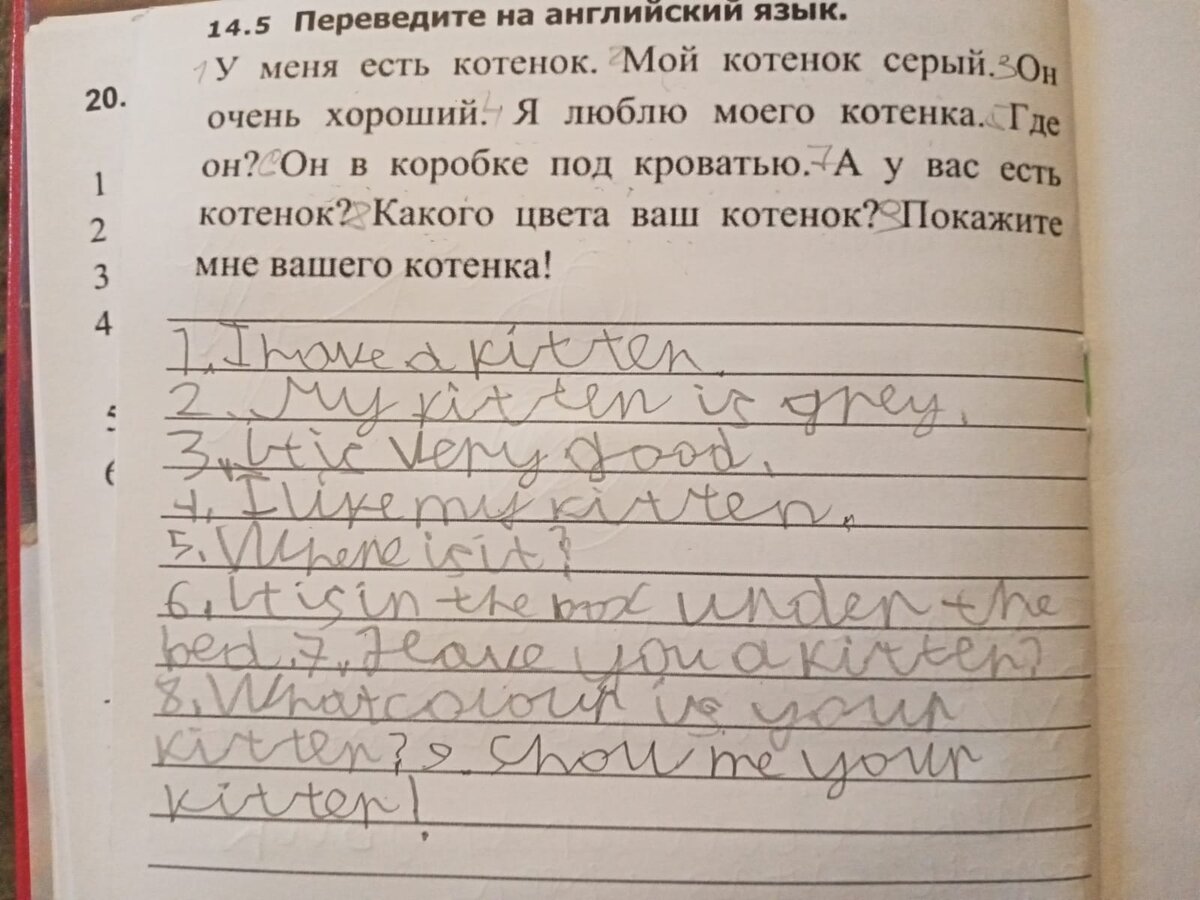 14.5 Переведите на английский язык.
1 У меня есть котенок. 2 Мой котенок серый. 3 Он
20.
очень хороший. 4 Я люблю моего котенка. 5 Где
он? 6 Он в коробке под кроватью. 7 А у вас есть
1
котенок? 8 Какого цвета ваш котенок? 9 Покажите
2
мне вашего котенка!
3
4
1. I have a kitten.
2. My kitten is grey.
5
3. It is very good.
6
4. I like my kitten.
5. Where is it?
6. It is in the box under the
bed. 7. Have you a kitten?
8. What colour is your
kitten? 9. Show me your
kitten!